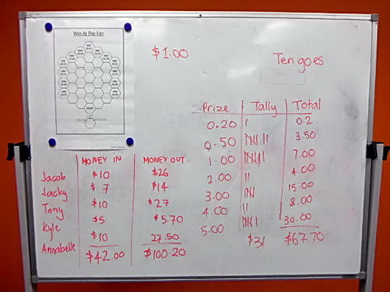 Win At The Fair
$1.00
Ten goes
Prize Tally Total
0.20 0.2
0.50 3.50
1.00 7.00
2.00 4.00
3.00 15.00
4.00 8.00
5.00 30.00
$31 $67.70
MONEY IN MONEY OUT
Jacob $10 $26
Jacky $7 $14
Tony $10 $27
Kyle $5 $5.70
Annabelle $10 27.50
$42.00 $100.20